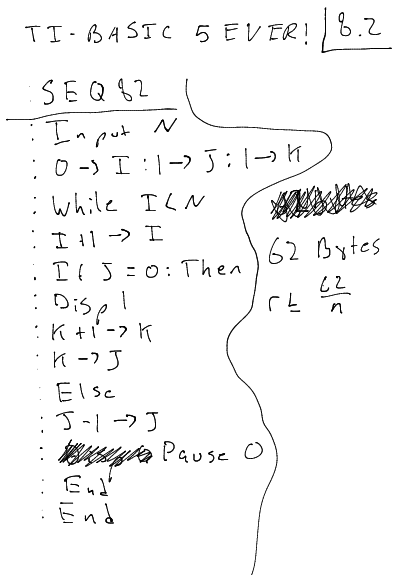 TI-BASIC 5 EVER! 8.2
:SEQ82
:Input N
:0→I:1→J:1→K
:While I<N
:I+1→I
:If J=0:Then
:Disp 1
:K+1→K
:K→J
:Else
:J-1→J
:Pause 0
:End
:End
62 Bytes
r≤ 62/n